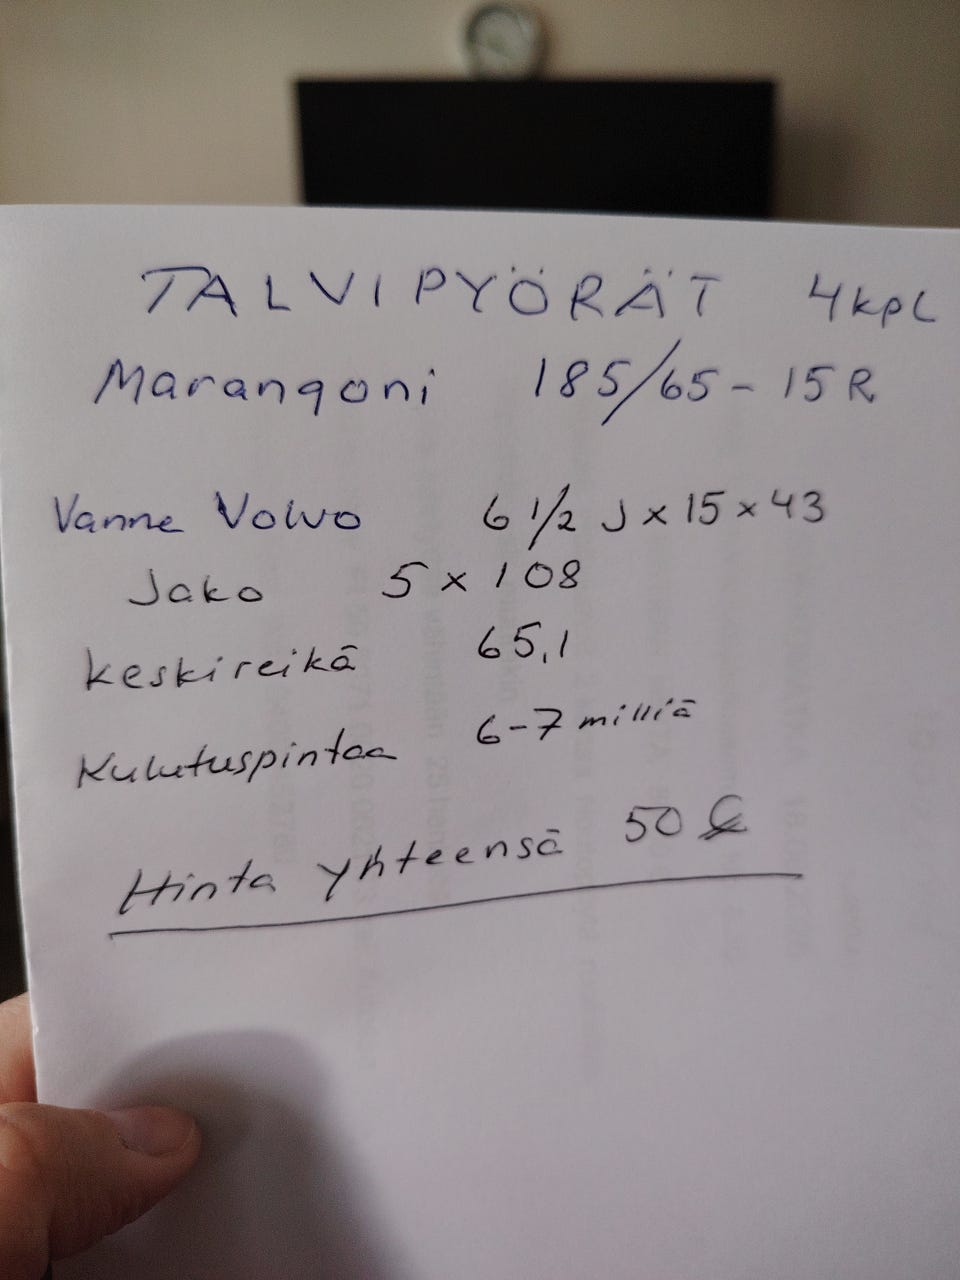 TALVIPYÖRÄT 4kpl
Marangoni 185/65-15R
Vanne Volvo 6 1/2 J x 15 x 43
Jako 5 x 108
Keskireikä 65,1
Kulutuspintaa 6-7 milliä
Hinta yhteensä 50 €